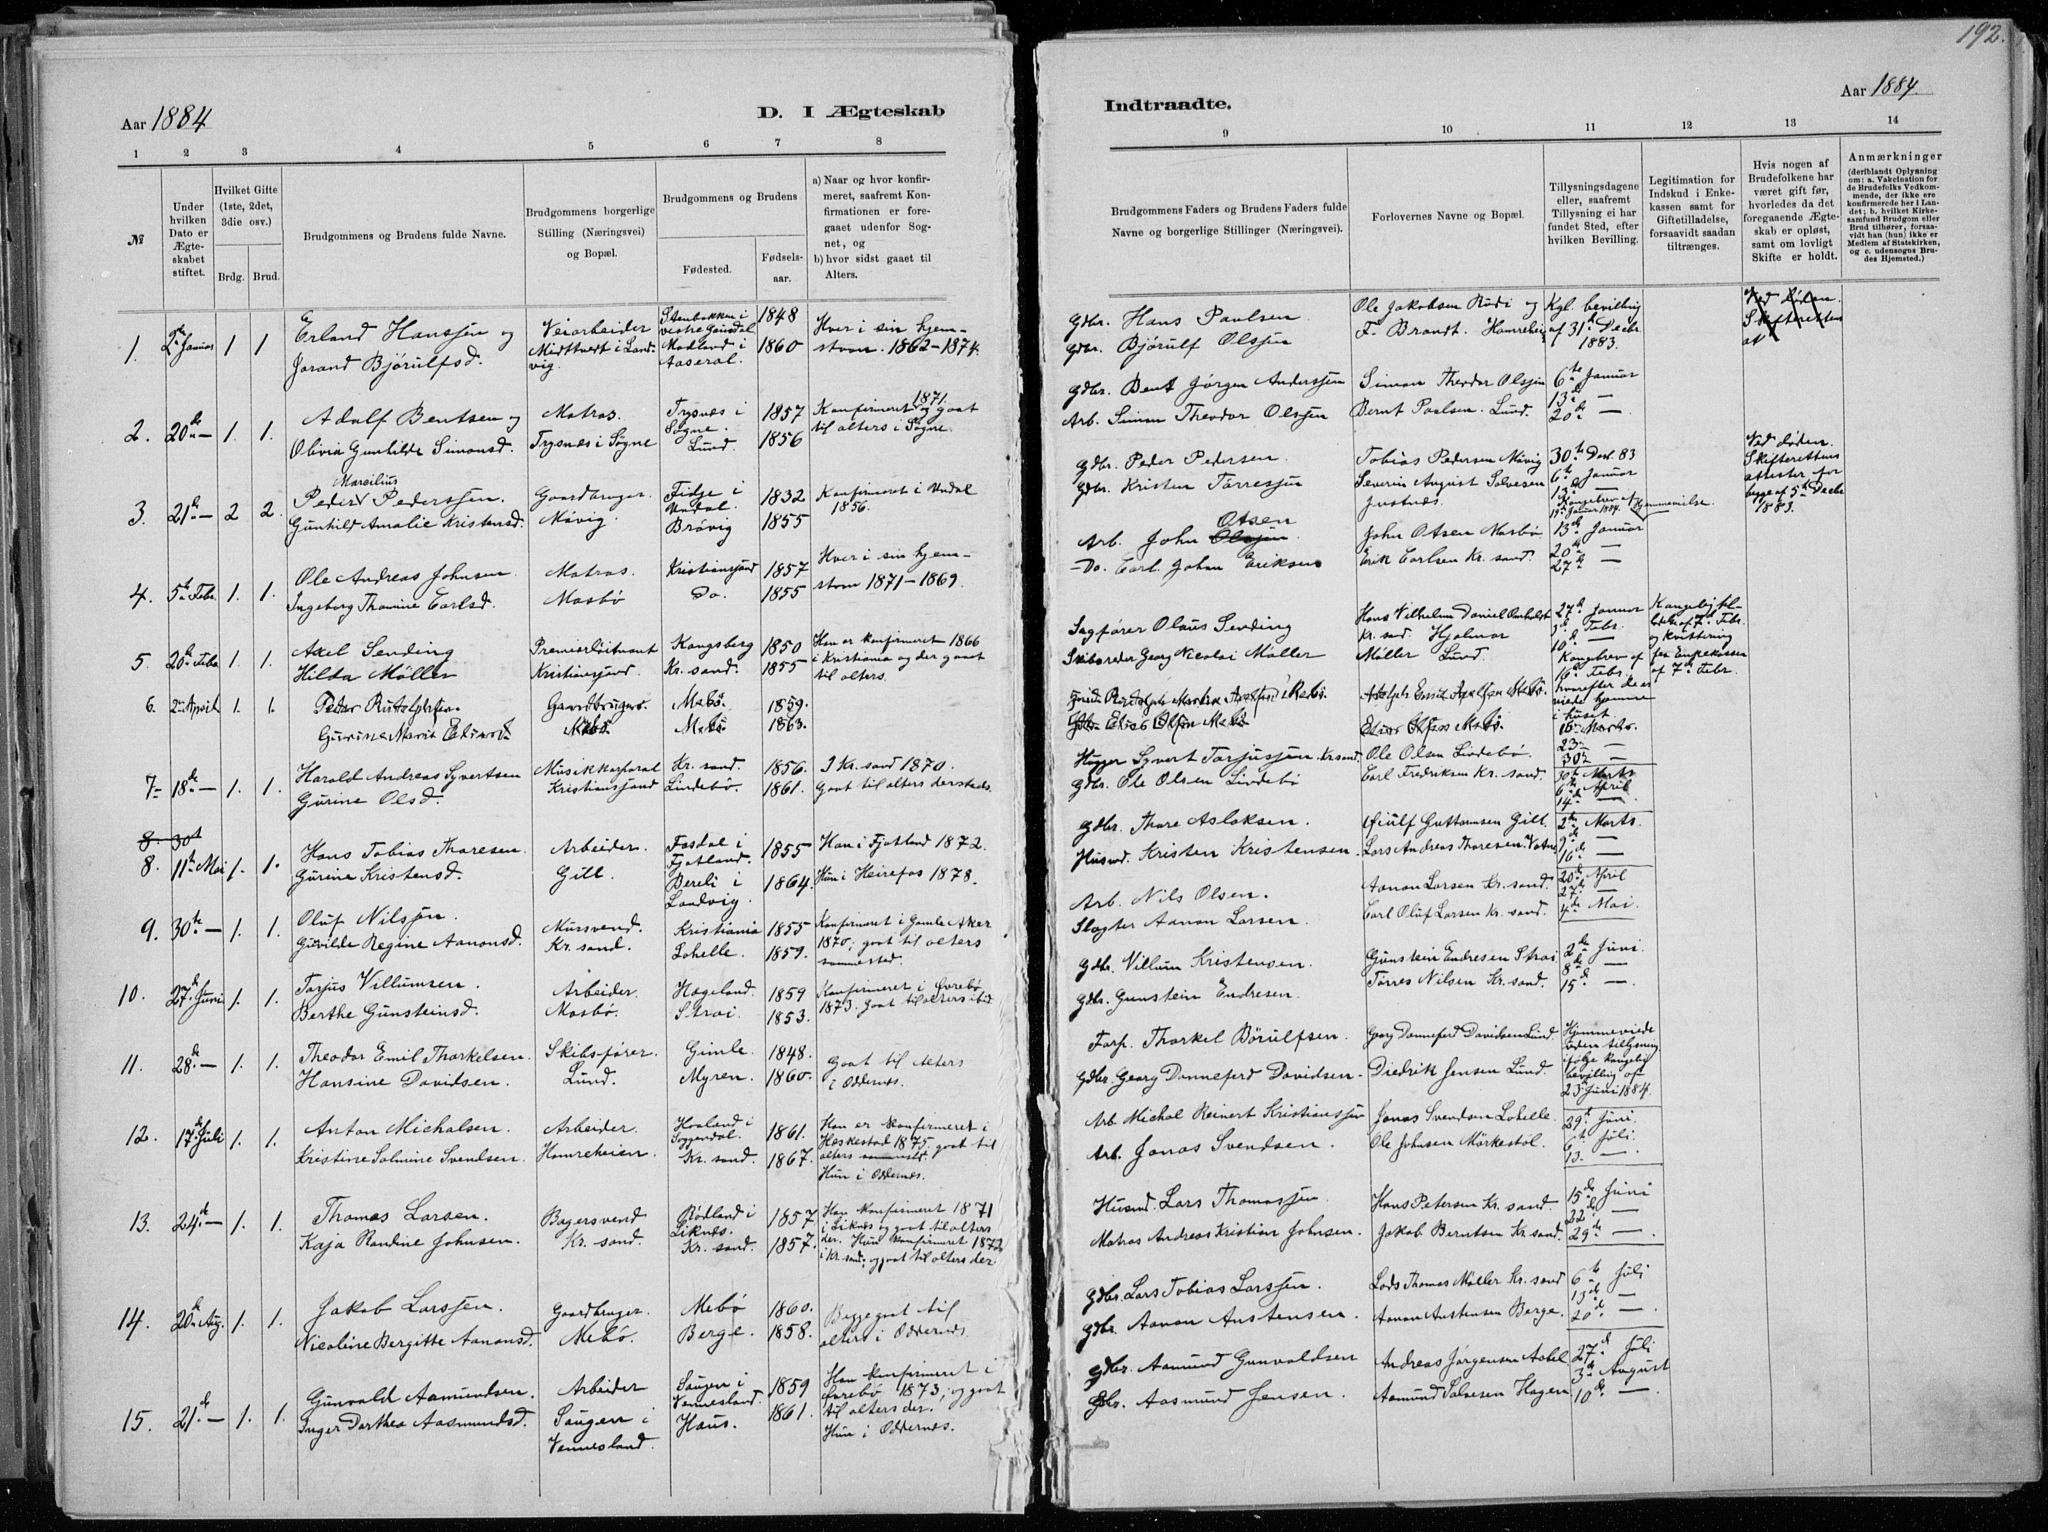 192.
Aar 1884
D. I Ægteskab
Indtraadte.
Aar 1884.
1 2 3 4 5 6 7 8
9 10 11 12 13 14
№
Under hvilken Dato er Ægteskabet stiftet.
Hvilket Gifte (1ste, 2det, 3die osv.)
Brdg. Brud.
Brudgommens og Brudens fulde Navne.
Brudgommens borgerlige Stilling (Næringsvei) og Bopæl.
Brudgommens og Brudens
Fødested.
Fødselsaar.
a) Naar og hvor konfirmeret, saafremt Konfirmationen er foregaaet udenfor Sognet, og
b) hvor sidst gaaet til Alters.
Brudgommens Faders og Brudens Faders fulde Navne og borgerlige Stillinger (Næringsvei).
Forlovernes Navne og Bopæl.
Tillysningsdagene eller, saafremt Tillysning ei har fundet Sted, efter hvilken Bevilling.
Legitimation for Indskud i Enkekassen samt for Giftetilladelse, forsaavidt saadan tiltrænges.
Hvis nogen af Brudefolkene har været gift før, hvorledes da det foregaaende Ægteskab er opløst, samt om lovligt Skifte er holdt.
Anmærkninger (deriblandt Oplysning om: a. Vakcination for de Brudefolks Vedkommende, der ikke ere konfirmerede her i Landet; b. hvilket Kirkesamfund Brudgom eller Brud tilhører, forsaavidt han (hun) ikke er Medlem af Statskirken, og c. udensogns Brudes Hjemsted.)
1. 2de Januar 1 1 Erland Hanssen og Veiarbeider Stenbakken i vestre Gausdal 1848 Hver i sin hjem-
Jorand Bjørulfsd. Midttveit i Landvig. Aaseral. 1860 stavn. 1862-1874.
Gdbr. Hans Paulsen Ole Jakobsen Rudi og Kgl. bevilling
Gdbr. Bjørulf Olssen F. Brandt. af 31te Decbr 1883.
Ved døden. Skifteretten at
2. 20de — 1. 1. Adolf Bentsen og Matros. Trysnes i Søgne. 1857 Konfirmeret 1871. og gaat
Olivia Gunhilde Simonsd. Trysnes i Søgne Lund. 1856 til alters i Søgne.
Gdbr. Bent Jørgen Anderssen Simon Theodor Olssen 6te Januar
Arb. Simon Theodor Olssen Bernt Paulsen Lund. 13de — 20de —
3. 21de — 2 2. Peder Marcilius Pederssen. Gaardbruger. Fidje i Undal. 1832 Konfirmeret i Undal
Gunhild Amalie Kristensd. Møvig. Brøvig 1855 1856.
Gdbr. Peder Pedersen Tobias Pedersen Møvig 30te Decb. 83
Gdbr. Kristen Tørressen Severin August Solvesen Justnæs. 6te Januar 13de
Kongebrev af 19de Januar 1884. Hjemmevielse.
Ved døden. Skifterettens attester for begge af 5te Decbr 1883.
4. 5te Febr. 1. 1. Ole Andreas Johnsen Matros. Kristianssand 1857 Hver i sin hjem-
Ingeborg Thomine Carlsd. Mosbø Do. 1855 stavn 1871-1869.
Arb. John Otsen Olssen John Otsen Mosbø 13de Januar
Do. Carl Johan Eriksen Erik Carlsen Kr. sand. 20de — 27de —
5. 20de Febr 1. 1. Axel Sending Premierløitnant Kongsberg 1850 Han er konfirmeret 1866
Hilda Møller Kristianssand Kr. sand. 1855 i Kristiania og der gaat til alters.
Sagfører Olaus Sending Hans Vilhelm Daniel Kr. sand 27de Januar 3de Febr.
Skibsreder Georg Nicolai Møller Hjalmar Møller Lund. 10de —
Kongebrev af 16de Febr. hvorefter de er viede hjemme i huset
af 7de Febr. og kvittering fra Enkekassen af 7de Febr.
6. 2den April 1. 1. Peder Gaardbruger. Mebø 1859.
Gurine Marie Mebø Mebø 1863.
16de Marts. 23de — 30te —
7. 18de — 1. 1. Harald Andreas Syvertsen Musikkorporal Kr. sand. 1856. I Kr. sand 1870.
Gurine Olsd. Kristianssand Lindebø. 1861. Gaat til alters dersteds.
Hugger Syvert Torjussen Kr. sand Ole Olsen Lindebø
Gdbr. Ole Olsen Lindebø Carl Fredriksen Kr. sand. 30te Marts 6te April 14de —
8. 30te
8. 11te Mai 1. 1. Hans Tobias Thoresen. Arbeider. Fosdal i Fjotland. 1855 Han i Fjotland 1872.
Gurine Kristensd. Gill. Bereli i Landvig. 1864. Hun i Heirefos 1878.
Gdbr. Thore Aslaksen. Guttormsen Gill. 2de Marts.
Husmd. Kristen Kristensen. Lars Andreas Thoresen 9de — 16de —
9. 30te — 1. 1. Oluf Nilssen. Mursvend. Kristiania 1855 Konfirmeret i Gamle Aker
Gurilde Regine Aanonsd. Kr. sand. Lohelle. 1859. 1870, gaat til alters sammested.
Arb. Nils Olsen. Aanon Larsen Kr. sand. 20de April 27de —
Slagter Aanon Larsen. Carl Oluf Larsen Kr. sand. 4de Mai.
10. 27de Juni 1. 1. Torjus Villumsen. Arbeider. Hægeland. 1859 Konfirmeret i Øvrebø
Berthe Gunsteinsd. Mosbø. Strai 1853. 1873. Gaat til alters ibid.
Gdbr. Villum Kristensen. Gunstein Endresen Strai 2de Juni 8de —
Gdbr. Gunstein Endresen. Tørres Nilsen Kr. sand. 15de —
11. 28de — 1. 1. Theodor Emil Thorkelsen. Skibsfører. Gimle. 1848. Gaat til alters
Hansine Davidsen. Lund. Myren. 1860. i Oddernæs.
Forp. Thorkel Børulfsen. Georg Donneferd Davidsen Lund. Hjemmeviede uden tillysning
Gdbr. Georg Donneferd Davidsen. Diedrik Jensen Lund. ifølge kongelig bevilling af 23de Juni 1884.
12. 17de Juli 1. 1. Anton Michalsen. Arbeider. Hovland i Soggendal. 1861. Han er konfirmeret i Heskestad 1875.
Kristine Salmine Svendsen. Homreheien. Kr. sand. 1867. gaat til alters sammested. Hun i Oddernæs.
Arb. Michal Reinert Kristianssen Jonas Svendsen Lohelle. 29de Juni
Arb. Jonas Svendsen. Ole Johnsen Mørkestøl. 6te Juli. 13. —
13. 24de — 1. 1. Thomas Larsen. Bagersvend Rødland i Liknæs. 1857. Han konfirmeret 1871 i Liknæs og gaat til alters
Kaja Randine Johnsen. Kr. sand. Kr. sand. 1857. der. Hun konfirmeret 1872 i Kr. sand. og gaat til alters der
Husmd. Lars Thomassen. Hans Petersen Kr. sand. 15de Juni 22de —
Matros Andreas Kristian Johnsen. Jakob Berntsen Kr. sand. 29de —
14. 20de Aug. 1. 1. Jakob Larssen. Gaardbruger. Mebø 1860. Begge gaat til
Nicoline Bergitte Aanonsd. Mebø. Berge. 1858. alters i Oddernæs.
Gdbr. Lars Tobias Larssen. Lods Thomas Møller Kr. sand 6te Juli 13de —
Gdbr. Aanon Austensen. Aanon Austensen Berge. 20de —
15. 21de — 1. 1. Gunvald Aamundsen. Arbeider Saugen i Vennesland. 1859 Han konfirmeret i Øvrebø 1873, og gaat
Inger Dorthea Aasmundsd. Saugen i Vennesland. Haus. 1861. til alters der. Hun i Oddernæs.
Gdbr. Aamund Gunvaldsen Andreas Jørgensen 27de Juli 3de August
Gdbr. Aasmund Jensen. Aamund Salvesen Hagen 10de —